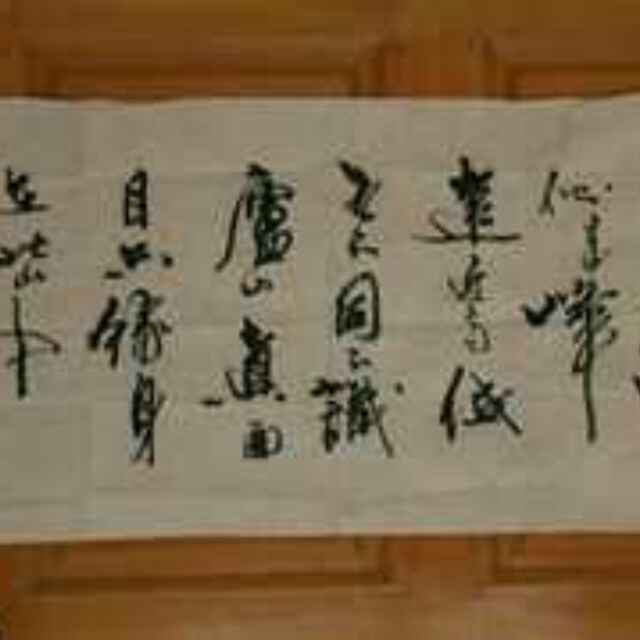 側成峰
遠近高低
各不同不識
廬山真面
目只緣身
在此山中